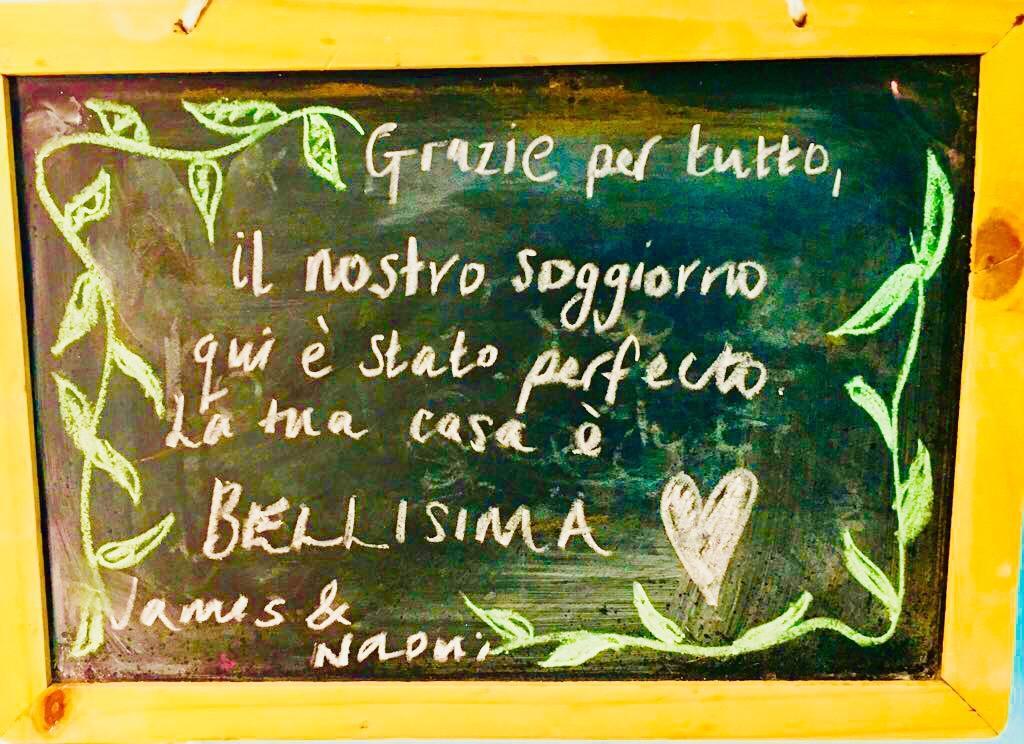 Grazie per tutto,
il nostro soggiorno
qui è stato perfecto.
La tua casa è
BELLISIMA
James &
Naomi